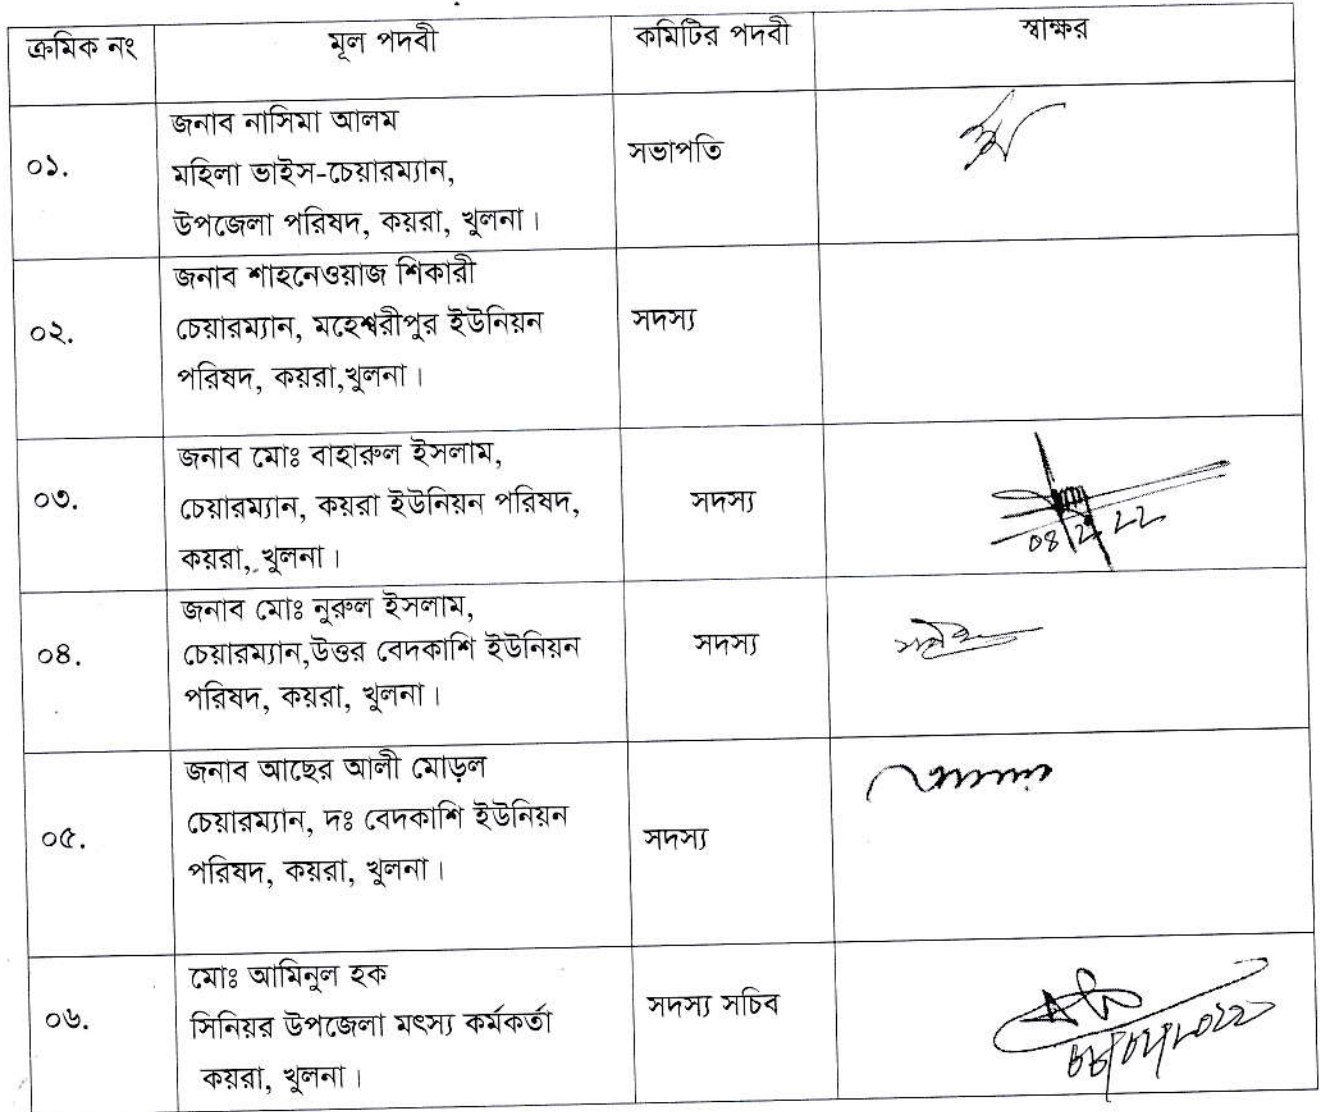 ক্রমিক নং মূল পদবী কমিটির পদবী স্বাক্ষর
০১. জনাব নাসিমা আলম
মহিলা ভাইস-চেয়ারম্যান,
উপজেলা পরিষদ, কয়রা, খুলনা।
সভাপতি
০২. জনাব শাহনেওয়াজ শিকারী
চেয়ারম্যান, মহেশ্বরীপুর ইউনিয়ন
পরিষদ, কয়রা,খুলনা।
সদস্য
০৩. জনাব মোঃ বাহারুল ইসলাম,
চেয়ারম্যান, কয়রা ইউনিয়ন পরিষদ,
কয়রা, খুলনা।
সদস্য
08/2/22
০৪. জনাব মোঃ নুরুল ইসলাম,
চেয়ারম্যান,উত্তর বেদকাশি ইউনিয়ন
পরিষদ, কয়রা, খুলনা।
সদস্য
০৫. জনাব আছের আলী মোড়ল
চেয়ারম্যান, দঃ বেদকাশি ইউনিয়ন
পরিষদ, কয়রা, খুলনা।
সদস্য
০৬. মোঃ আমিনুল হক
সিনিয়র উপজেলা মৎস্য কর্মকর্তা
কয়রা, খুলনা।
সদস্য সচিব